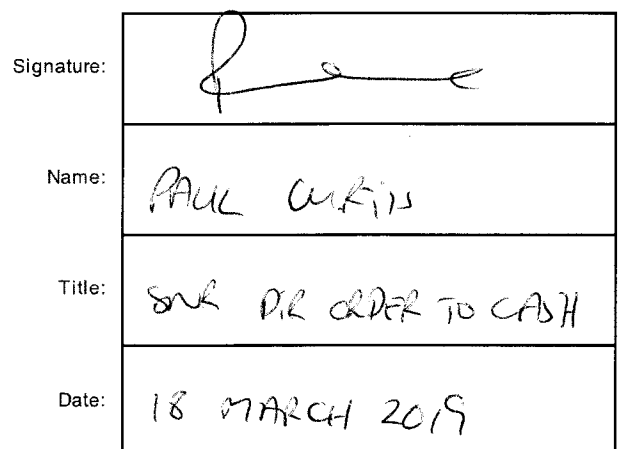 Signature:
Name: PAUL CURTIS
Title: SNR DIR ORDER TO CASH
Date: 18 MARCH 2019